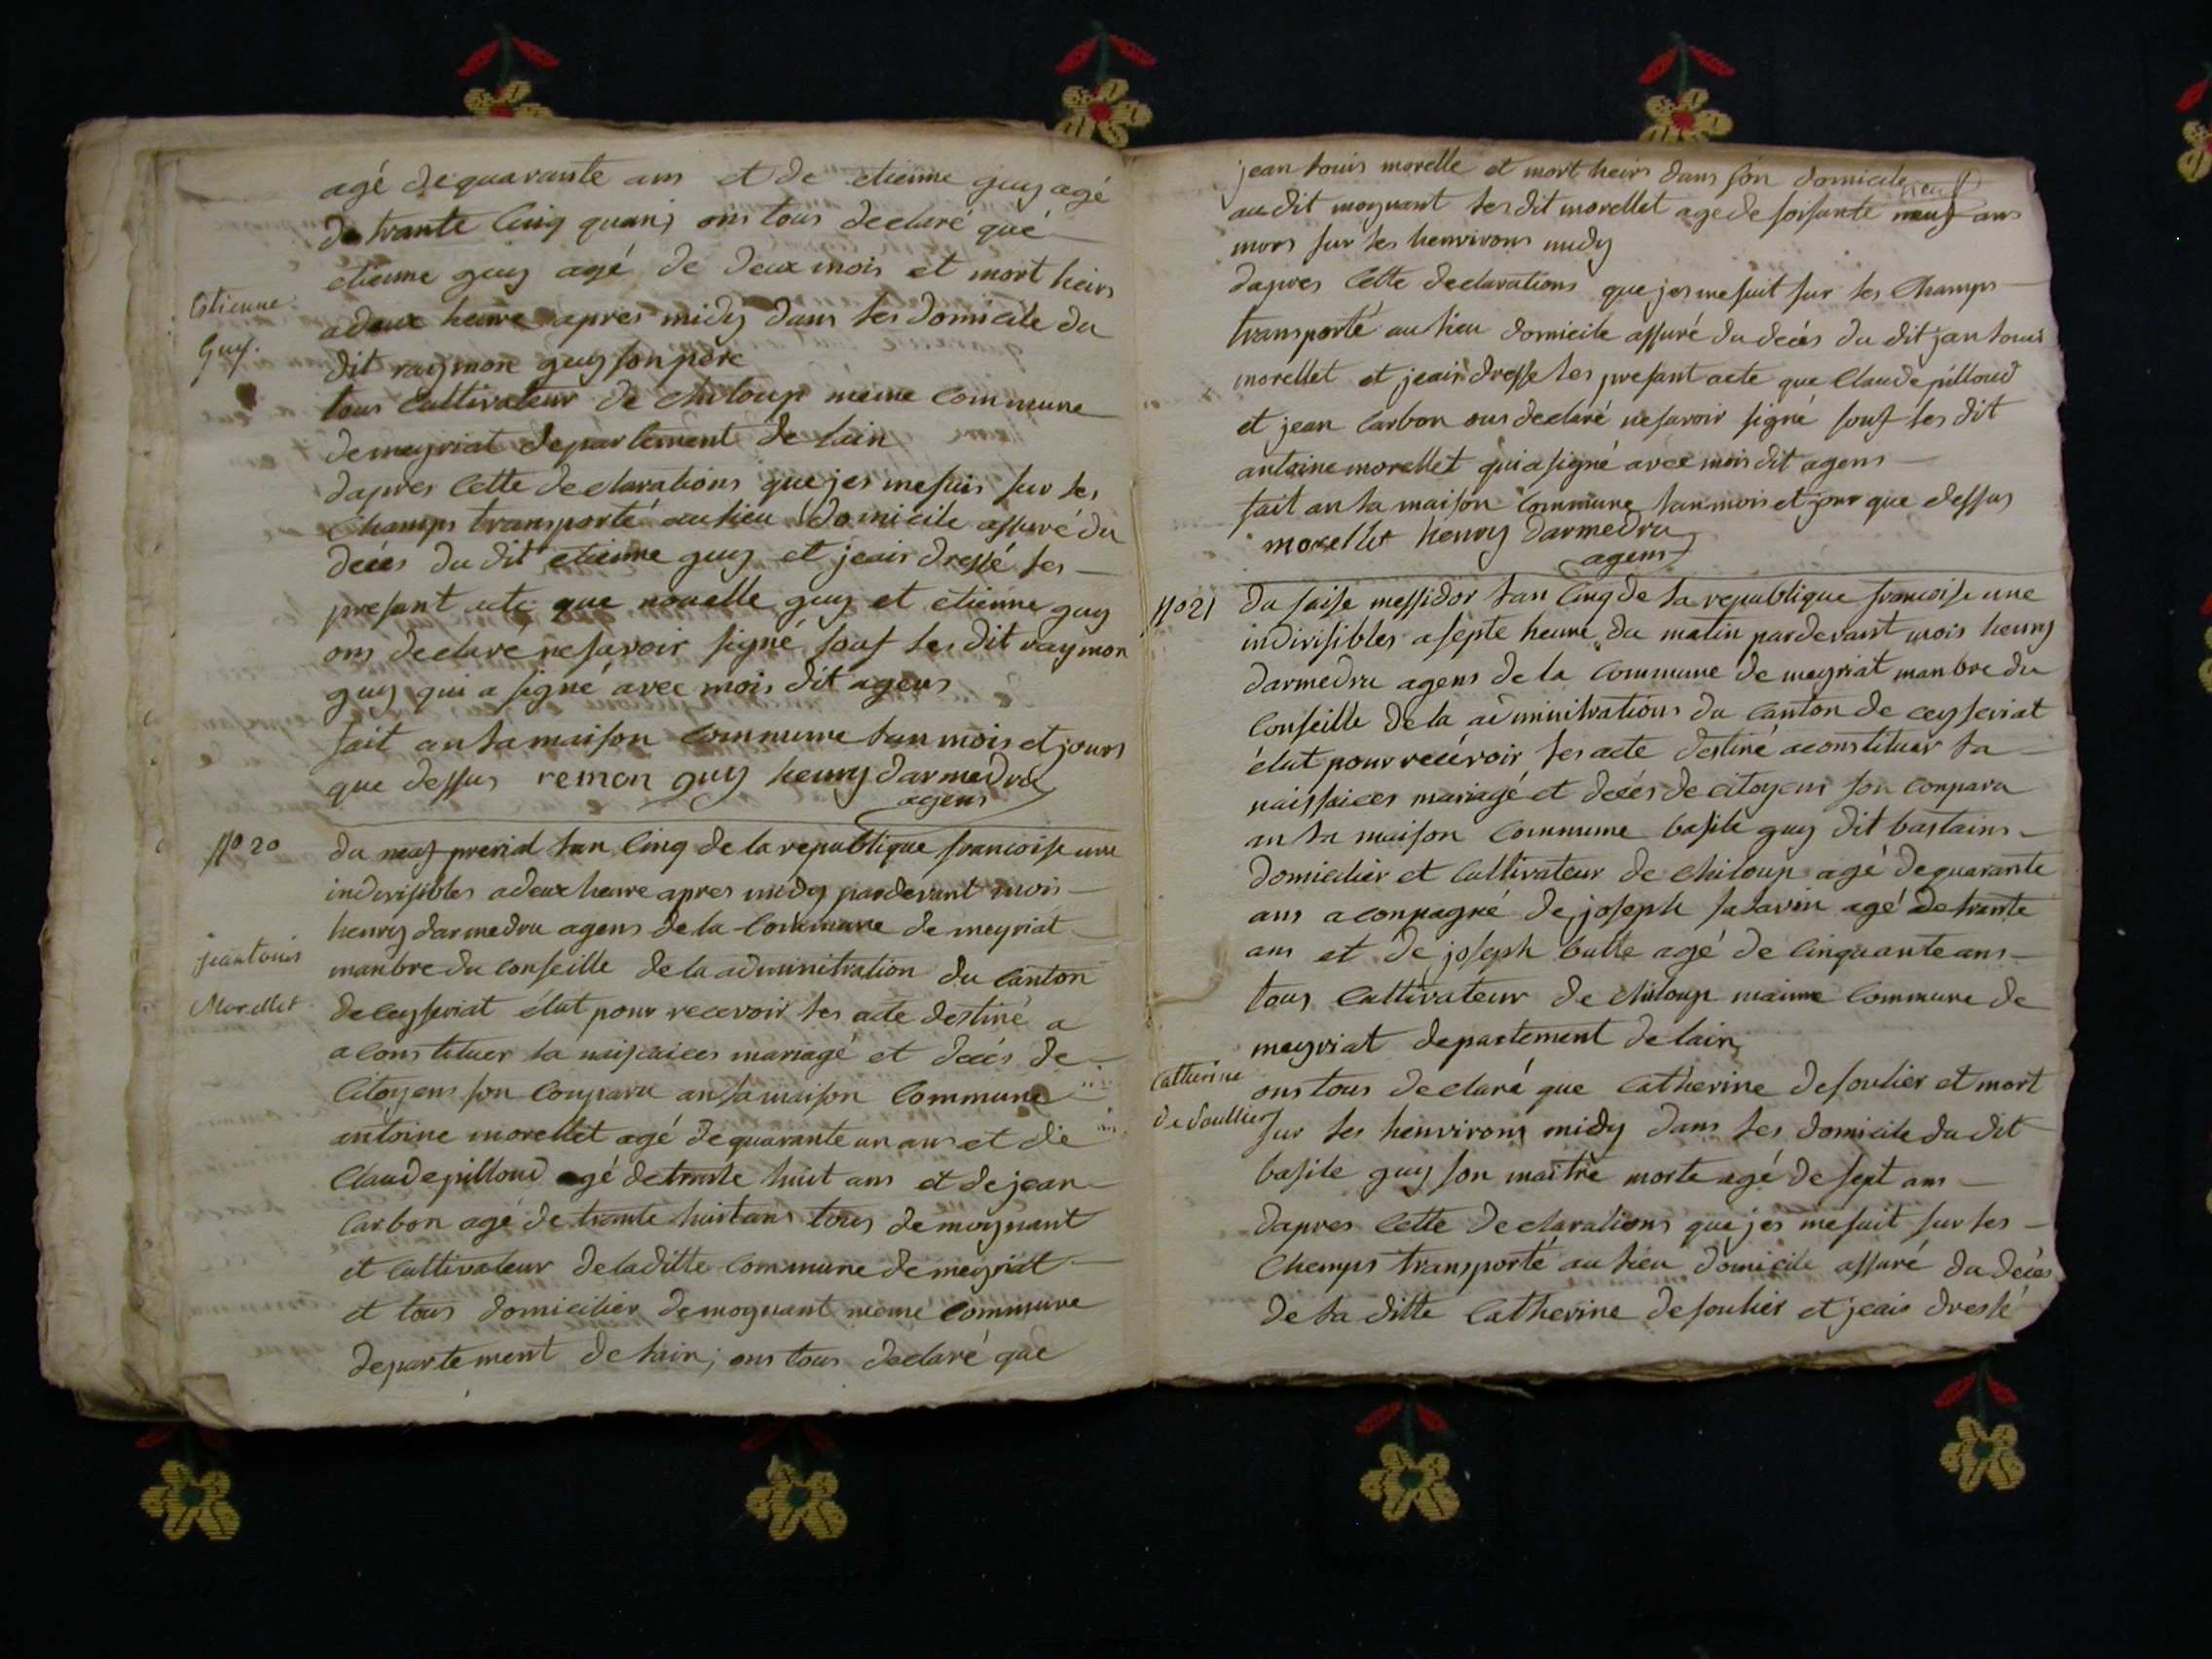 agé de quarante ans et de etienne guy agé
de trante cinq quan; ons tous declaré que
etienne guy agé de deux mois et mort heirs
Etienne
Guy.
a deux heure apres midy dans les domicile du
dit raymon guy son pere
tous cultivateur de chiloup meine commune
de meyriat departement de lain
dapres cette declarations que jes me suis sur les
champs transporté au lieu domicile assuré du
decés du dit etienne guy et jeair dressé les
presant acte que nouelle guy et etienne guy
ons declaré ne savoir signé souf les dit raymon
guy qui a signé avec mois dit agens
fait an la maison commune lan mois et jours
que dessus remon guy henry darmedru
agens
No 20
du neuf prerial lan cinq de la republique francoise une
indivisibles a deux heure apres midy pardevant mois
henry darmedru agens de la commune de meyriat
jeanlouis
Morellet
manbre du conseille de la adminitration du canton
de ceyseriat élut pour recevoir les acte destiné a
a constituer la naisaices mariagé et decés de
citoyens son conparu an la maison commune
antoine morellet agé de quarante un ans et de
claude pilloud agé de trante huit ans et de jean
carbon agé de trante huit ans tous de moynant
et cultivateur de la ditte commune de meyriat
et tous domicilier de moynant meme commune
departement de lain; ons tous declaré que
jean louis morelle et mort heirs dans son domicile
neuf
au dit moynant les dit morellet age de soisante neuf ans
mors sur les henvirons midy
dapres cette declarations que jes me suit sur les champs
transporté au lieu domicile assuré du decés du dit jan louis
morellet et jeair dresse les presant acte que claude pilloud
et jean carbon ons declaré ne savoir signé souf les dit
antoine morellet qui a signé avec mois dit agens
fait an la maison commune lan mois et jour que dessus
morellet henry darmedru
agens
No 21
du saise messidor lan cinq de la republique francoise une
indivisibles a septe heure du matin pardevant mois henry
darmedru agens de la commune de meyriat manbre du
conseille de la adminitrations du canton de ceyseriat
élut pour recévoir les acte destiné a constituer la
naissaices mariagé et decés de citoyens son conparu
an la maison commune basile guy dit bastains
domicilier et cultivateur de chiloup agé de quarante
ans aconpagné de joseph salavin agé de trante
ans et de joseph bulle agé de cinquante ans
tous cultivateur de chiloup maime commune de
meyriat departement de lain
Catherine
de Soullier
ons tous declaré que catherine de soulier et mort
sur les henvirons midy dans les domicile du dit
basile guy son maitre morte agé de sept ans
dapres cette declarations que jes me suit sur les
champs transporté au lieu domicile assuré du decés
de la ditte catherine de soulier et jeais dressé